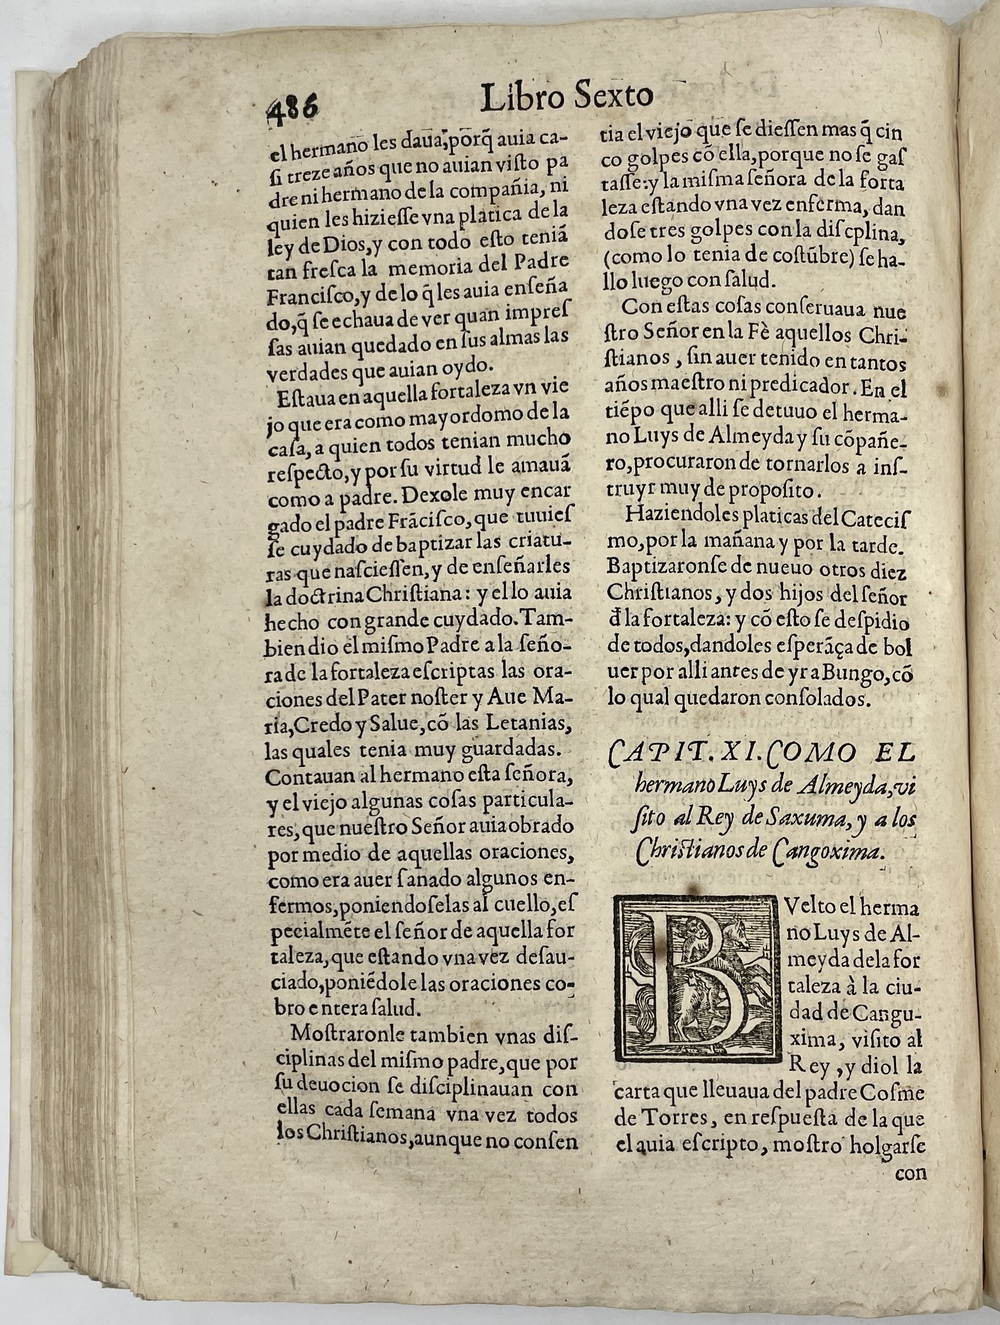 486
Libro Sexto
el hermano les daua, porq̃ auia ca-
ſi treze años que no auian viſto pa
dre ni hermano de la compañia, ni
quien les hizieſſe vna platica de la
ley de Dios, y con todo eſto teniã
tan freſca la memoria del Padre
Franciſco, y de lo q̃ les auia enſeña
do, q̃ ſe echaua de ver quan impreſ
ſas auian quedado en ſus almas las
verdades que auian oydo.
Eſtaua en aquella fortaleza vn vie
jo que era como mayordomo de la
caſa, a quien todos tenian mucho
reſpecto, y por ſu virtud le amauã
como a padre. Dexole muy encar
gado el padre Frãciſco, que tuuieſ
ſe cuydado de baptizar las criatu-
ras que naſcieſſen, y de enſeñarles
la doctrina Chriſtiana: y el lo auia
hecho con grande cuydado. Tam-
bien dio el miſmo Padre a la ſeño-
ra de la fortaleza eſcriptas las ora-
ciones del Pater noſter y Aue Ma-
ria, Credo y Salue, cõ las Letanias,
las quales tenia muy guardadas.
Contauan al hermano eſta ſeñora,
y el viejo algunas coſas particula-
res, que nueſtro Señor auia obrado
por medio de aquellas oraciones,
como era auer ſanado algunos en-
fermos, poniendoſelas al cuello, eſ
pecialmẽte el ſeñor de aquella for
taleza, que eſtando vna vez deſau-
ciado, poniẽdole las oraciones co-
bro entera ſalud.
Moſtraronle tambien vnas diſ-
ciplinas del miſmo padre, que por
ſu deuocion ſe diſciplinauan con
ellas cada ſemana vna vez todos
los Chriſtianos, aunque no conſen
tia el viejo que ſe dieſſen mas q̃ cin
co golpes cõ ella, porque no ſe gaſ
taſſe: y la miſma ſeñora de la forta
leza eſtando vna vez enferma, dan
doſe tres golpes con la diſcplina,
(como lo tenia de coſtũbre) ſe ha-
llo luego con ſalud.
Con eſtas coſas conſeruaua nue
ſtro Señor en la Fè aquellos Chri-
ſtianos, ſin auer tenido en tantos
años maeſtro ni predicador. En el
tiẽpo que alli ſe detuuo el herma-
no Luys de Almeyda y ſu cõpañe-
ro, procuraron de tornarlos a inſ-
truyr muy de propoſito.
Haziendoles platicas del Catecis
mo, por la mañana y por la tarde.
Baptizaronſe de nueuo otros diez
Chriſtianos, y dos hijos del ſeñor
d̃ la fortaleza: y cõ eſto ſe deſpidio
de todos, dandoles eſperãça de bol
uer por alli antes de yr a Bungo, cõ
lo qual quedaron conſolados.
CAPIT. XI. COMO EL
hermano Luys de Almeyda, vi
ſito al Rey de Saxuma, y a los
Chriſtianos de Cangoxima.
BVelto el herma
no Luys de Al-
meyda de la for
taleza à la ciu-
dad de Cangu-
xima, viſito al
Rey, y diol la
carta que lleuaua del padre Coſme
de Torres, en reſpueſta de la que
el auia eſcripto, moſtro holgarſe
con